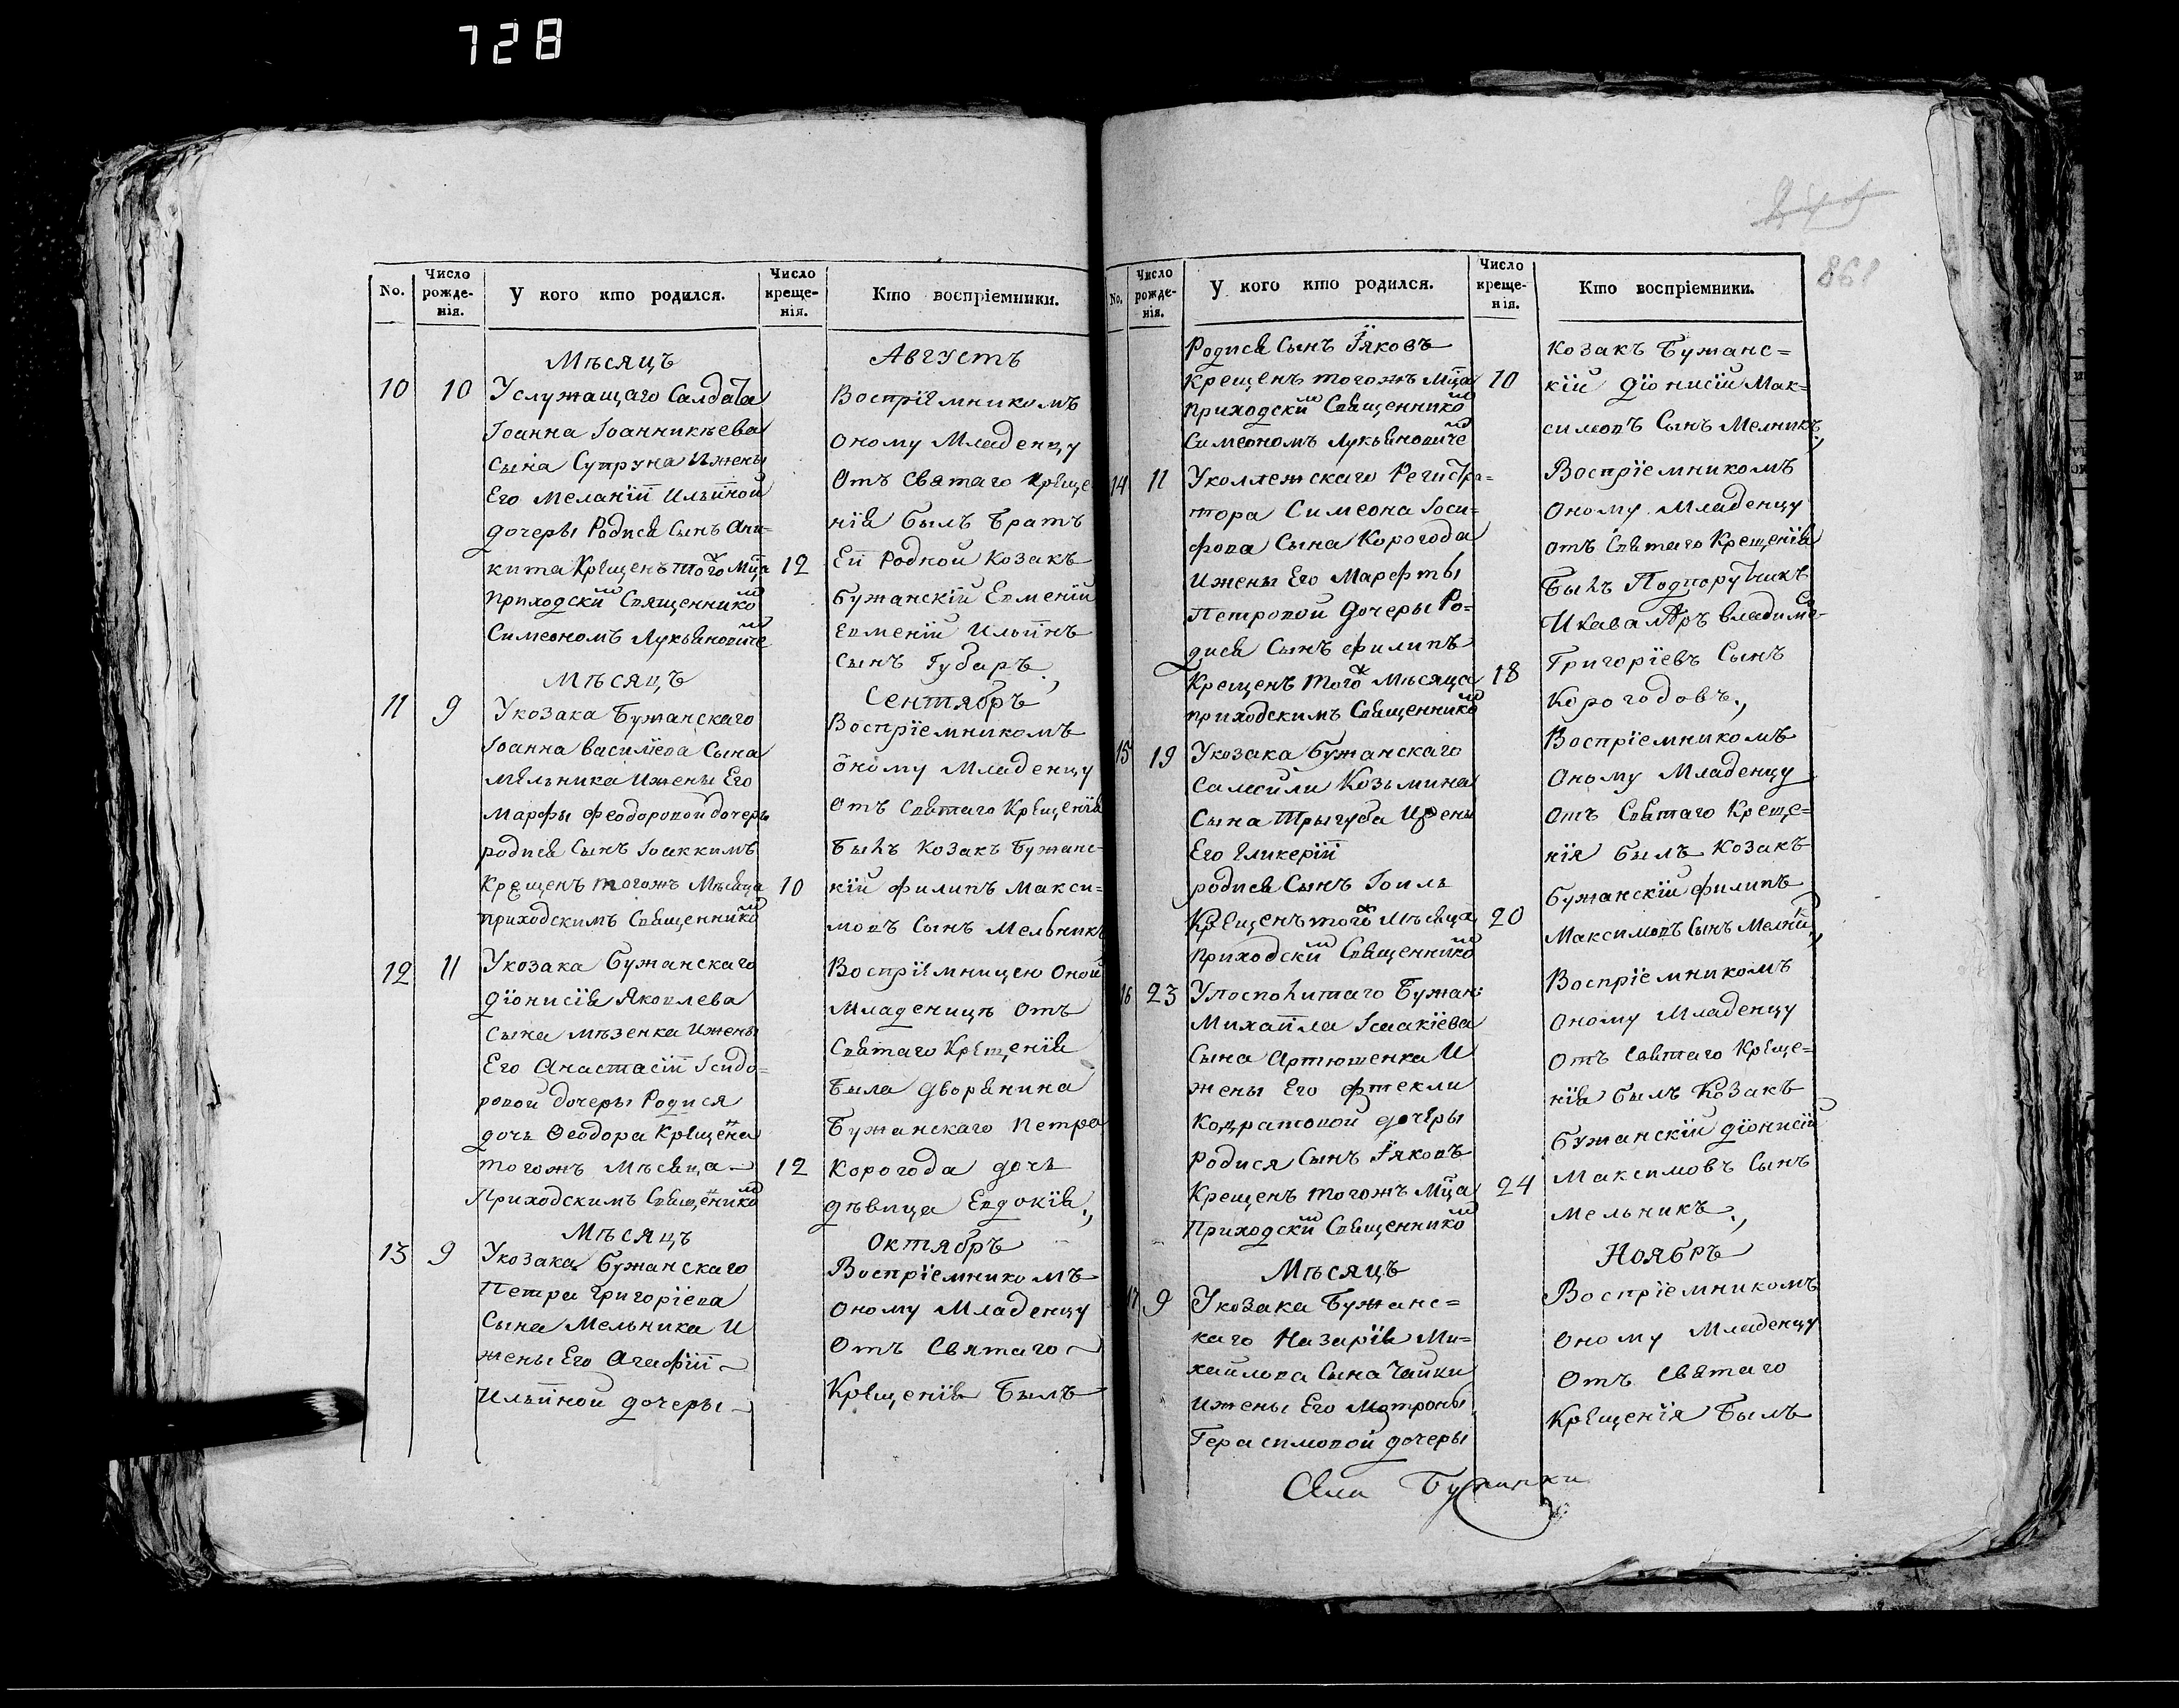 728
861
No.
Число рожде-нія.
У кого кто родился.
Число креще-нія.
Кто воспріемники.
Мѣсяцъ
Августъ
10 10 Услужащаго Салдата
Іоанна Іоанникѣева
Сына Супруна Ижены
Его Меланіи Ильиной
дочеры Родися Сынъ Ани-
кита Крещенъ того ж Мца 12
приходским Священником
Симеономъ Лукьяновиче
Воспріемникомъ
Оному Младенцу
Отъ Святаго Креще
нія былъ Братъ
Еи Родной Козакъ
Бужанскій Евменій
Евменій Ильинъ
Сынъ Губаръ.,
Мѣсяцъ
Сентябръ
11 9 Укозака Бужанскаго
Іоанна Василіева Сына
Мельника Ижены Его
Марфы Феодоровой дочеры
родися Сынъ Іоаккимъ
Крещенъ тогожъ Мѣсяца 10
приходскимъ Священником
Воспріемникомъ
Оному Младенцу
Отъ Святаго Крещенія
Былъ Козакъ Бужанс-
кій Филипъ Макси-
мовъ Сынъ Мельникъ
12 11 Укозака Бужанскаго
Діонисія Яковлева
Сына Мѣзенка Ижены
Его Анастасіи Ісидо-
ровой дочеры Родися
дочь Феодора Крещенна
тогожъ Мѣсяца 12
Приходскимъ Священником
Воспріемницею Оной
Младеницѣ Отъ
Святаго Крещенія
Была Дворянина
Бужанскаго Петра
Корогода дочь
дѣвица Евдокія.,
Мѣсяцъ
Октябръ
13 9 Укозака Бужанскаго
Петра Григоріева
Сына Мельника И
жены Его Агафіи
Ильиной дочеры
Воспріемникомъ
Оному Младенцу
Отъ Святаго
Крещенія Былъ
No.
Число рожде-нія.
У кого кто родился.
Число креще-нія.
Кто воспріемники.
Родися Сынъ Іяковъ
Крещенъ тогожъ Мца 10
приходским Священником
Симеономъ Лукьяновиче
Козакъ Бужанс=
кій Діонисій Мак-
симовъ Сынъ Мелникъ.,
14 11 Уколлежскаго Регистра=
тора Симеона Іоси-
фова Сына Корогода
Ижены Его Марфты
Петровой Дочеры Ро-
дися Сынъ Филипъ
Крещенъ того ж Мѣсяца 18
приходскимъ Священником
Воспріемникомъ
Оному Младенцу
отъ Святаго Крещенія
Былъ Подпоручикъ
Икавалѣръ Владимѣ
Григоріевъ Сынъ
Корогодовъ.,
15 19 Укозака Бужанскаго
Самойли Козьмина
Сына Трыгуба Ижены
Его Гликеріи
родися Сынъ Іоиль
Крещенъ того ж Мѣсяца 20
приходским Священником
Воспріемникомъ
Оному Младенцу
Отъ Святаго Креще=
нія былъ Козакъ
Бужанскій Филипъ
Максимовъ Сынъ Мелни
16 23 Упосполитаго Бужан:
Михаила Ісаакіева
Сына Артюшенка И
жены Его Фтекли
Кодратовой дочеры
родися Сынъ Іяковъ
Крещенъ тогожъ Мца 24
Приходским Священником
Воспріемникомъ
Оному Младенцу
Отъ Святаго Креще=
нія былъ Козакъ
Бужанскій Діонисій
Максимовъ Сынъ
Мельникъ.,
Мѣсяцъ
Ноябръ
17 9 Укозака Бужанс=
каго Назарія Ми=
хайлова Сына Чайки
Ижены Его Мотроны
Герасимовой дочеры
Воспріемникомъ
Оному Младенцу
Отъ Святаго
Крещенія Былъ
Села Бужинки